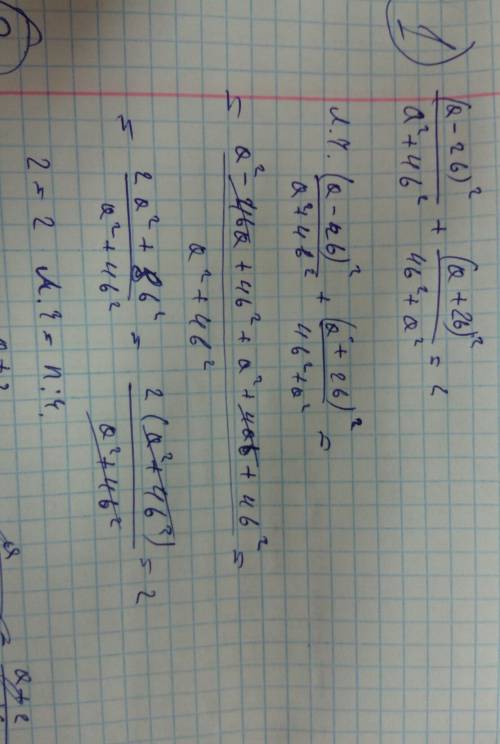 1
(a-2b)²/(a²+4b²) + (a+2b)²/(4b²+a²) = 2
л.ч. (a-2b)²/(a²+4b²) + (a+2b)²/(4b²+a²) =
= (a² - 4ba + 4b² + a² + 4ab + 4b²)/(a²+4b²) =
= (2a² + 8b²)/(a²+4b²) = 2(a²+4b²)/(a²+4b²) = 2
2 = 2 л.ч = п.ч.